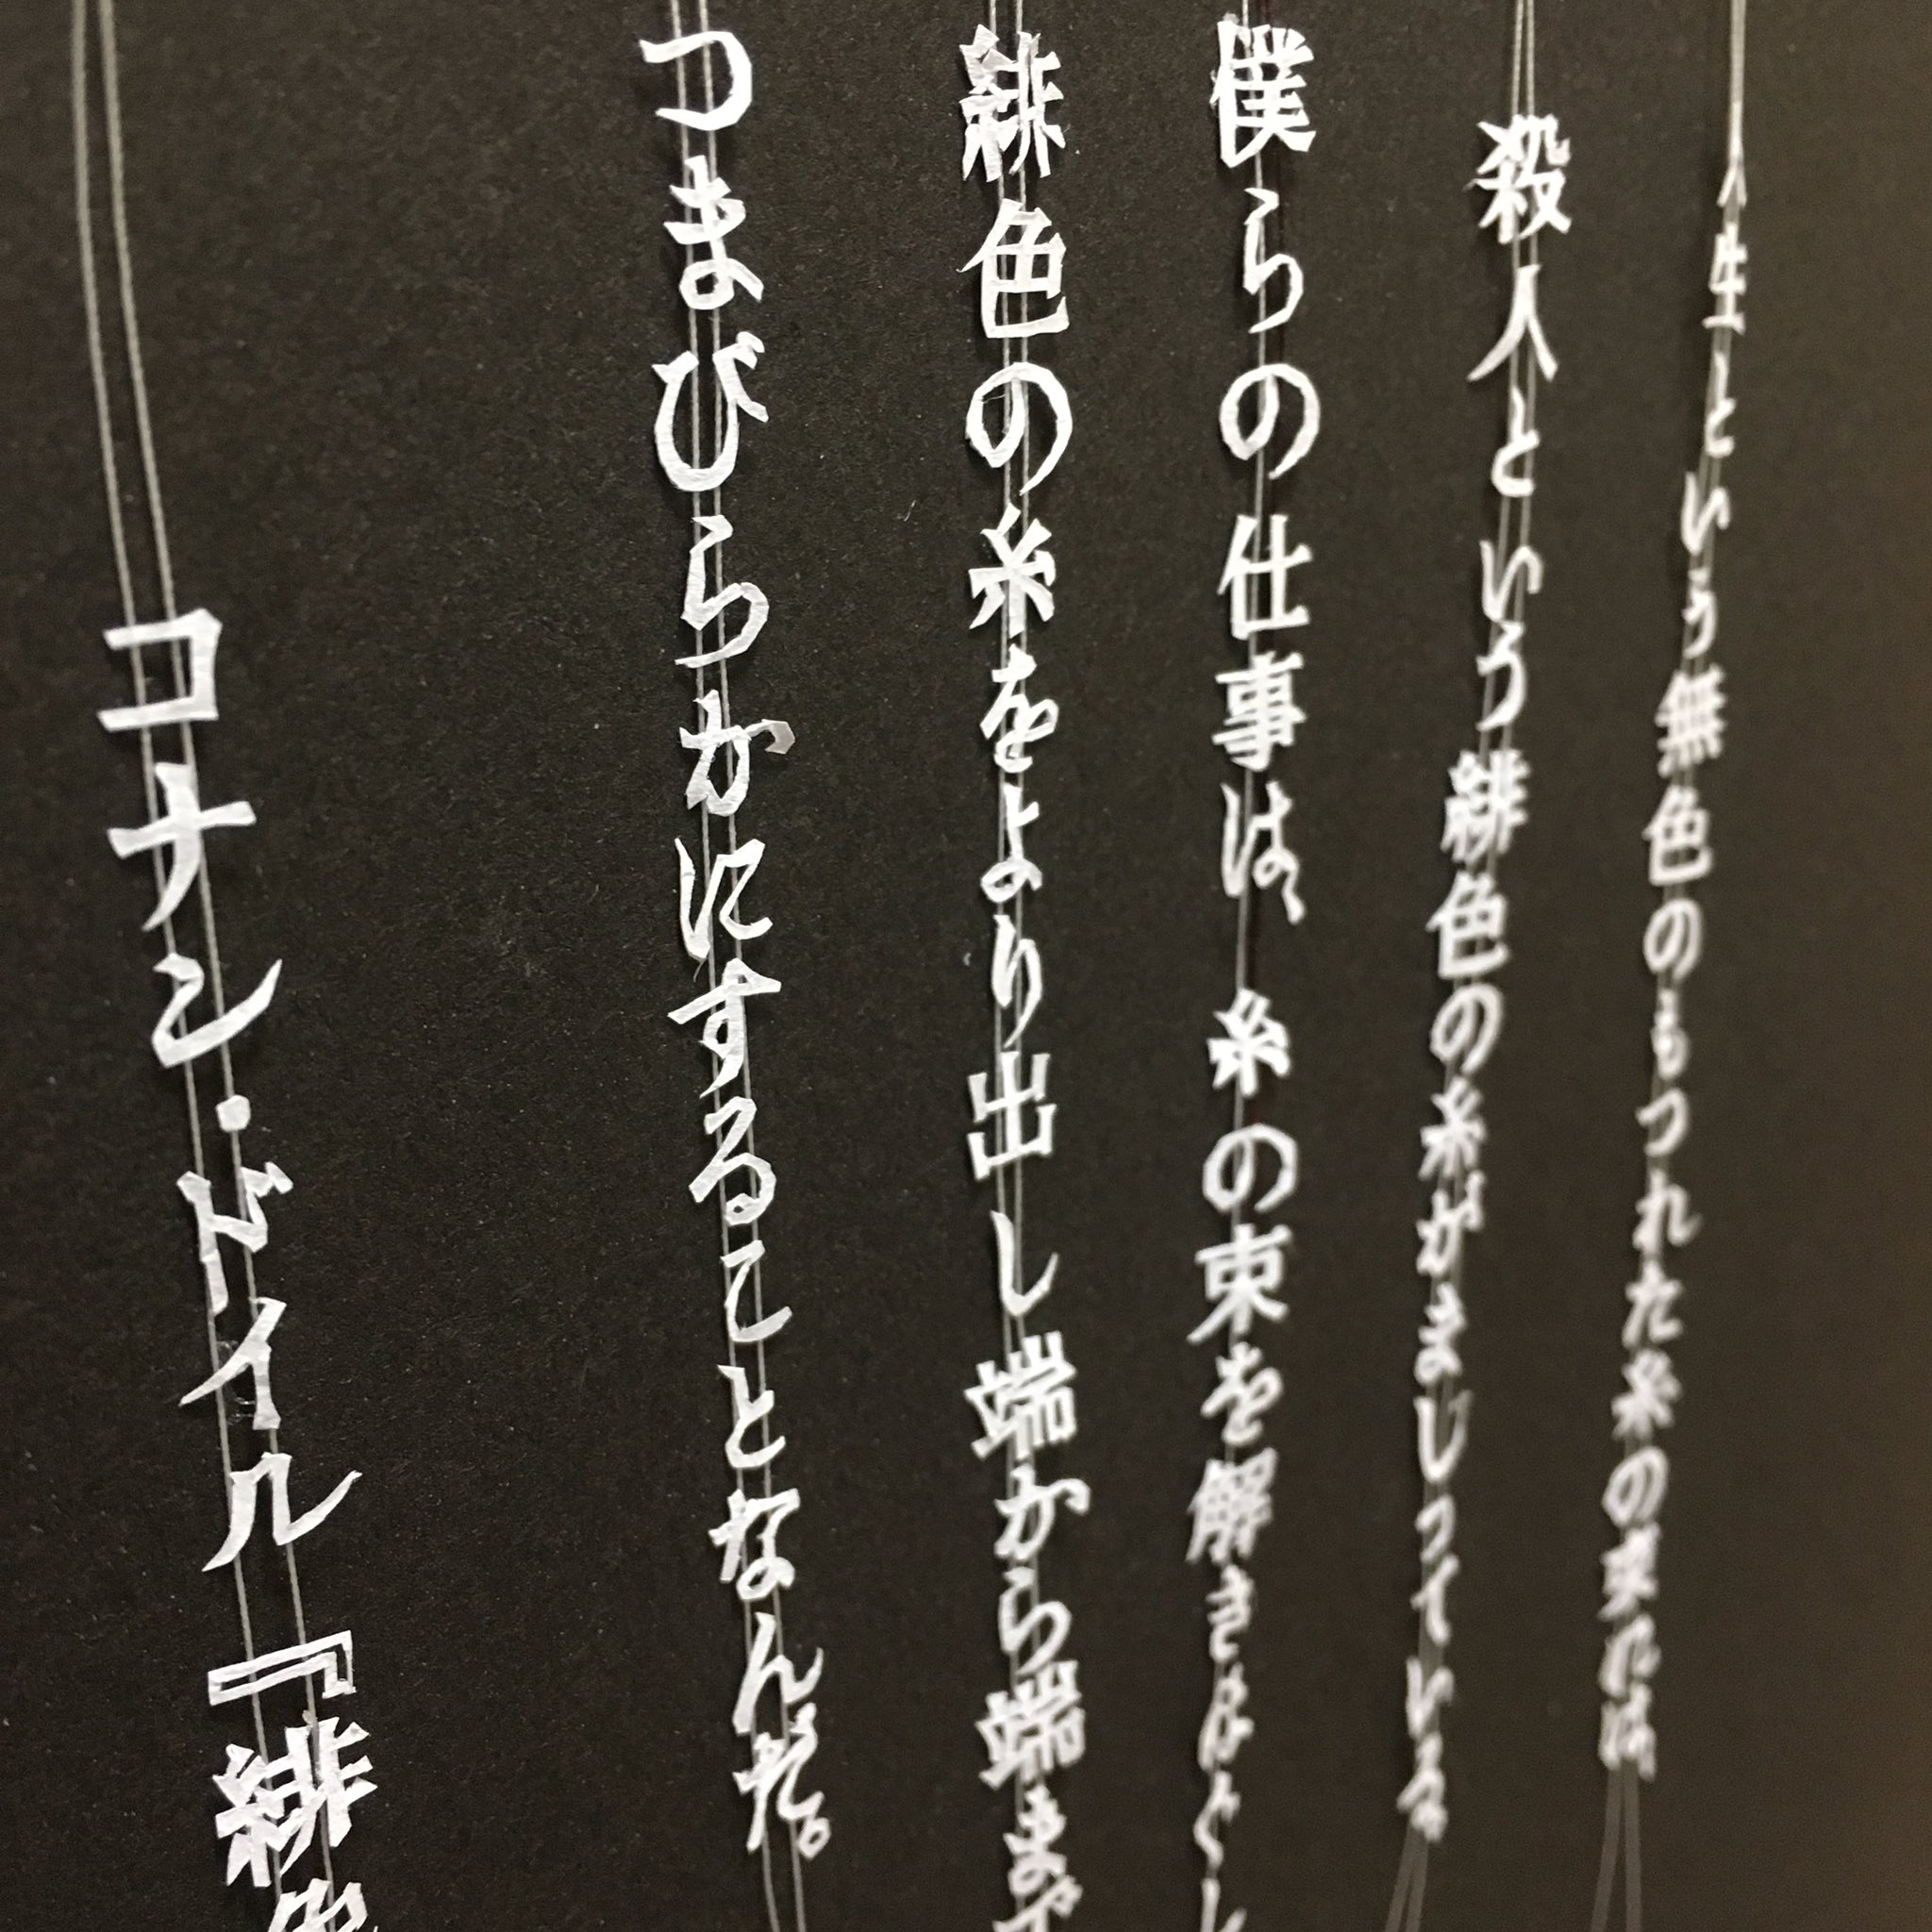 人生という無色のもつれた糸の束には
殺人という緋色の糸がまじっている
僕らの仕事は、糸の束を解きほぐし
緋色の糸をより出し端から端まで
つまびらかにすることなんだ。
コナン・ドイル『緋色